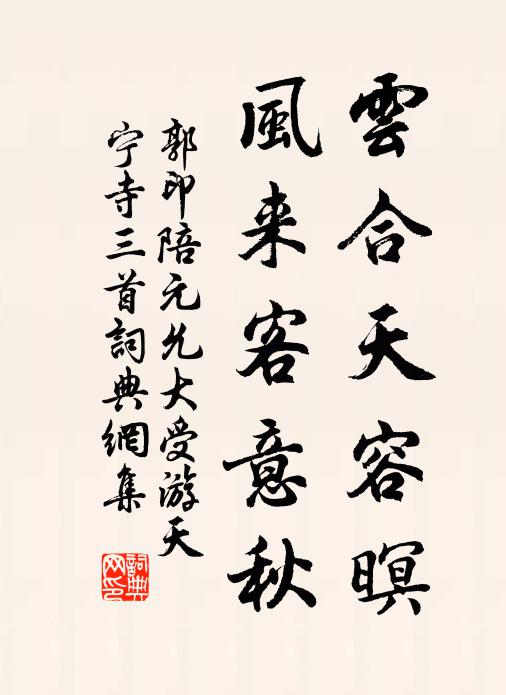 雲合天容暝
風来客意秋
郭印陪元允大受游天
宁寺三首詞典網集
詞典
网印